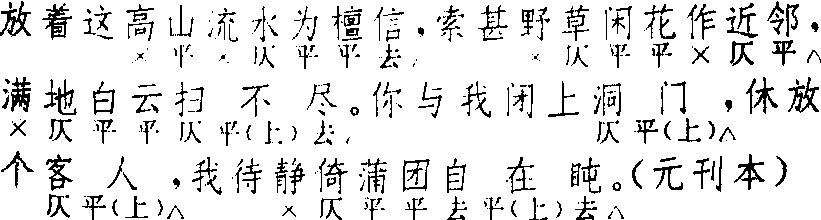 放着这高山流水为檀信，索甚野草闲花作近邻，
× 平 × 仄 平 平 去， × 仄 平 平 × 仄 平∧
满地白云扫不尽。你与我闭上洞门，休放
× 仄 平 平 仄 平（上）去， 仄 平（上）∧
个客人，我待静倚蒲团自在盹。（元刊本）
仄 平（上）∧ × 仄 平 平 去 平（上）去∧